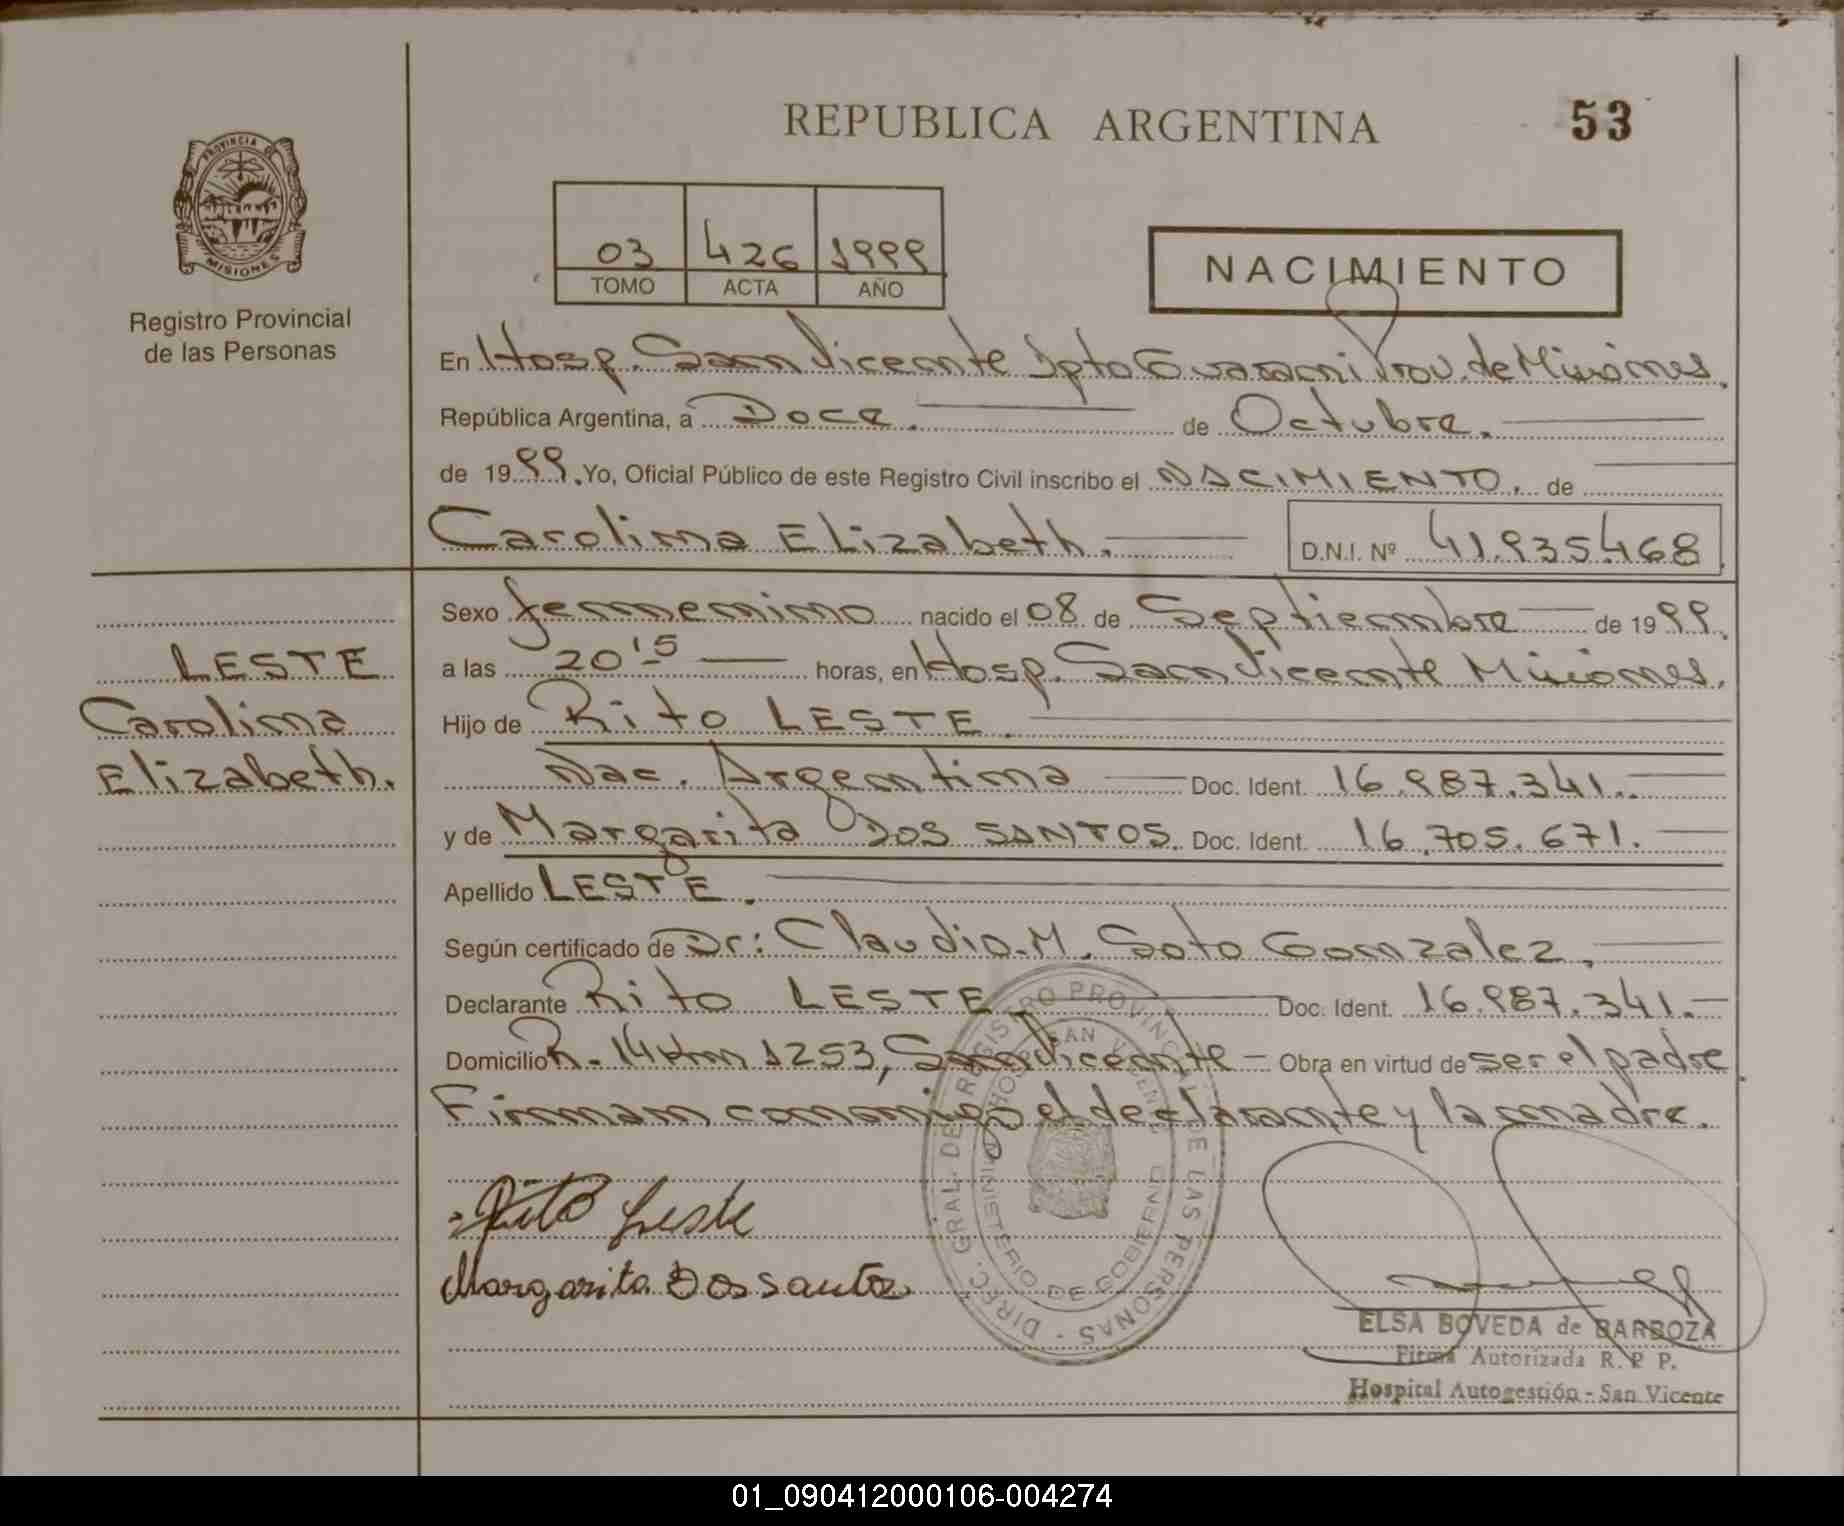 REPUBLICA ARGENTINA
53
PROVINCIA DE
MISIONES
Registro Provincial
de las Personas
03 426 1999
TOMO ACTA AÑO
NACIMIENTO
En Hosp. San Vicente Dpto Guarani Prov. de Misiones.
República Argentina, a Doce. de Octubre.
de 1999. Yo, Oficial Público de este Registro Civil inscribo el NACIMIENTO. de
Carolina Elizabeth. D.N.I. Nº 41.935.468
LESTE
Carolina
Elizabeth.
Sexo femenino nacido el 08 de Septiembre de 1999.
a las 20 15 horas, en Hosp. San Vicente Misiones.
Hijo de Rito LESTE.
Nac. Argentina Doc. Ident. 16.987.341.
y de Margarita DOS SANTOS. Doc. Ident. 16.705.671.
Apellido LESTE.
Según certificado de Dr: Claudio. M. Soto Gonzalez.
Declarante Rito LESTE Doc. Ident. 16.987.341.
Domicilio R. 14 Km 1253, San Vicente - Obra en virtud de ser el padre.
Firman conmigo el declarante y la madre.
Rito Leste
Margarita Dos santos
DIREC. GRAL. DE REGISTRO PROVINCIAL DE LAS PERSONAS
MINISTERIO DE GOBIERNO
HOSP. SAN VICENTE
ELSA BOVEDA de BARBOZA
Firma Autorizada R. P P.
Hospital Autogestión - San Vicente
01_090412000106-004274